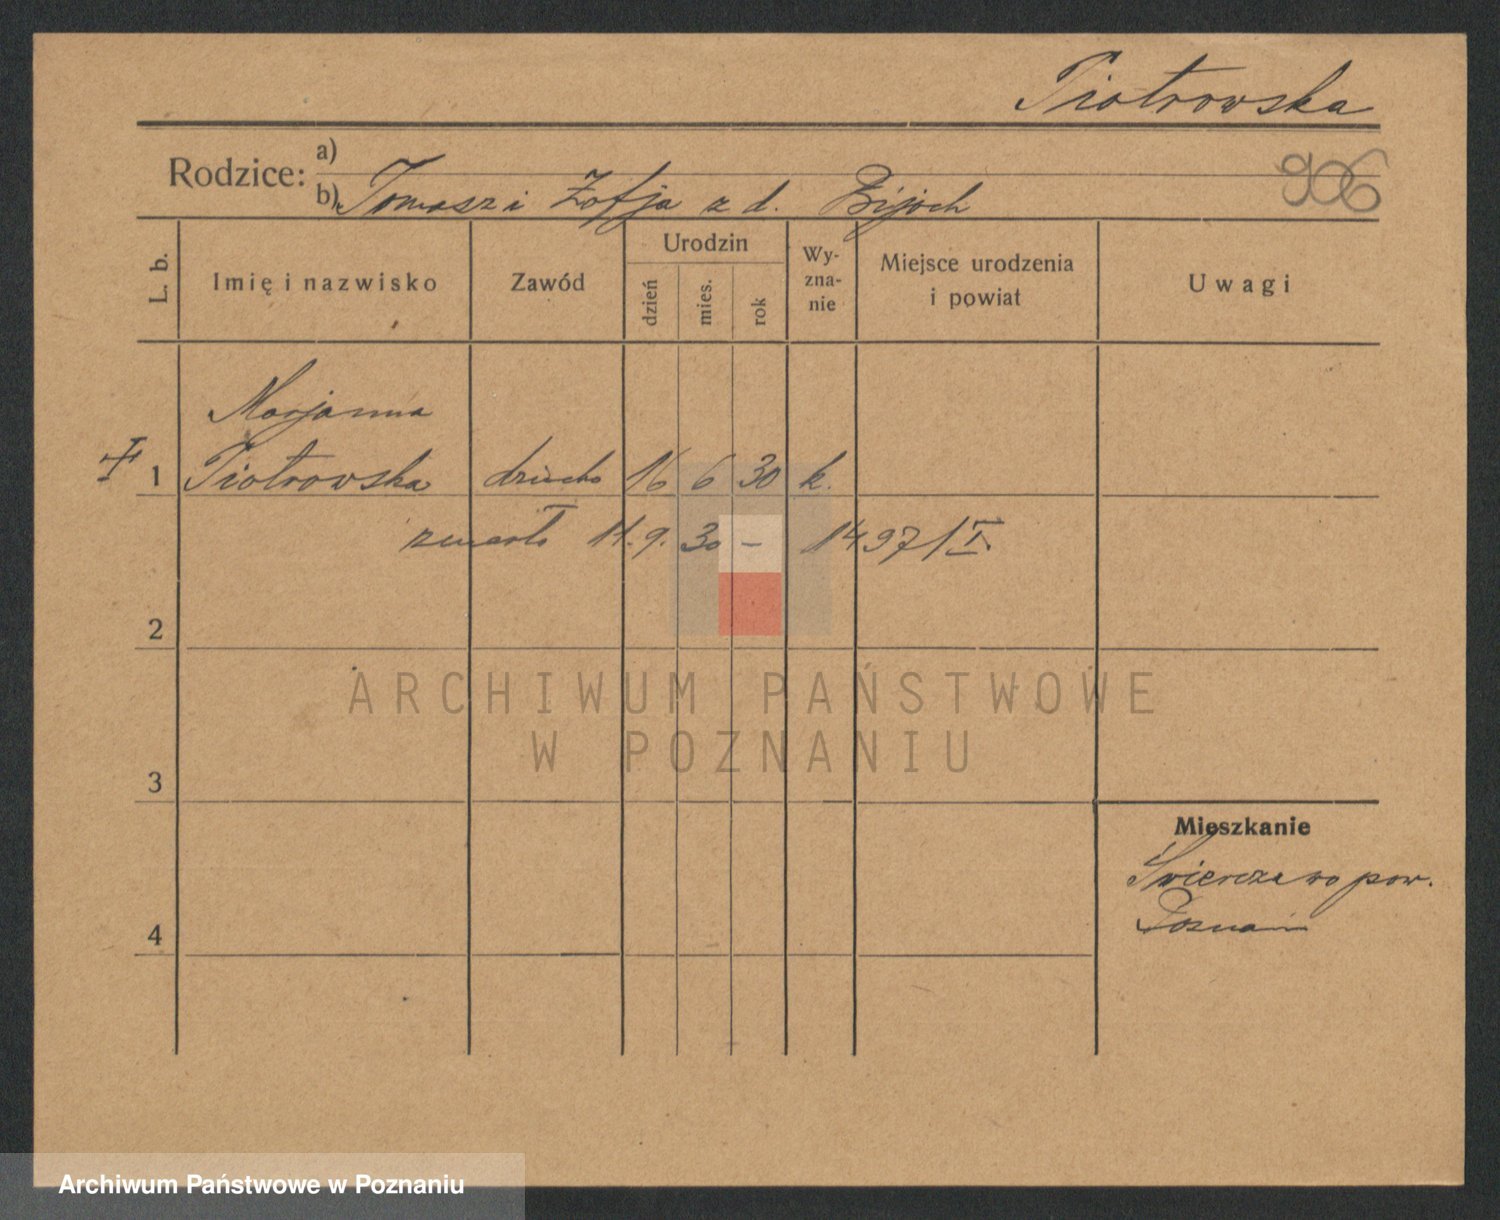 Piotrowska
906
Rodzice: a)
b) Tomasz i Zofja z d. Bijoch
L. b.
Imię i nazwisko
Zawód
Urodzin
dzień
mies.
rok
Wy-
zna-
nie
Miejsce urodzenia
i powiat
Uwagi
Marjanna
1 Piotrowska dziecko 16 6 30 k.
zmarło 11. 9. 30 – 1497/I.
2
3
4
Mieszkanie
Świerczewo pow.
Poznań
ARCHIWUM PAŃSTWOWE
W POZNANIU
Archiwum Państwowe w Poznaniu